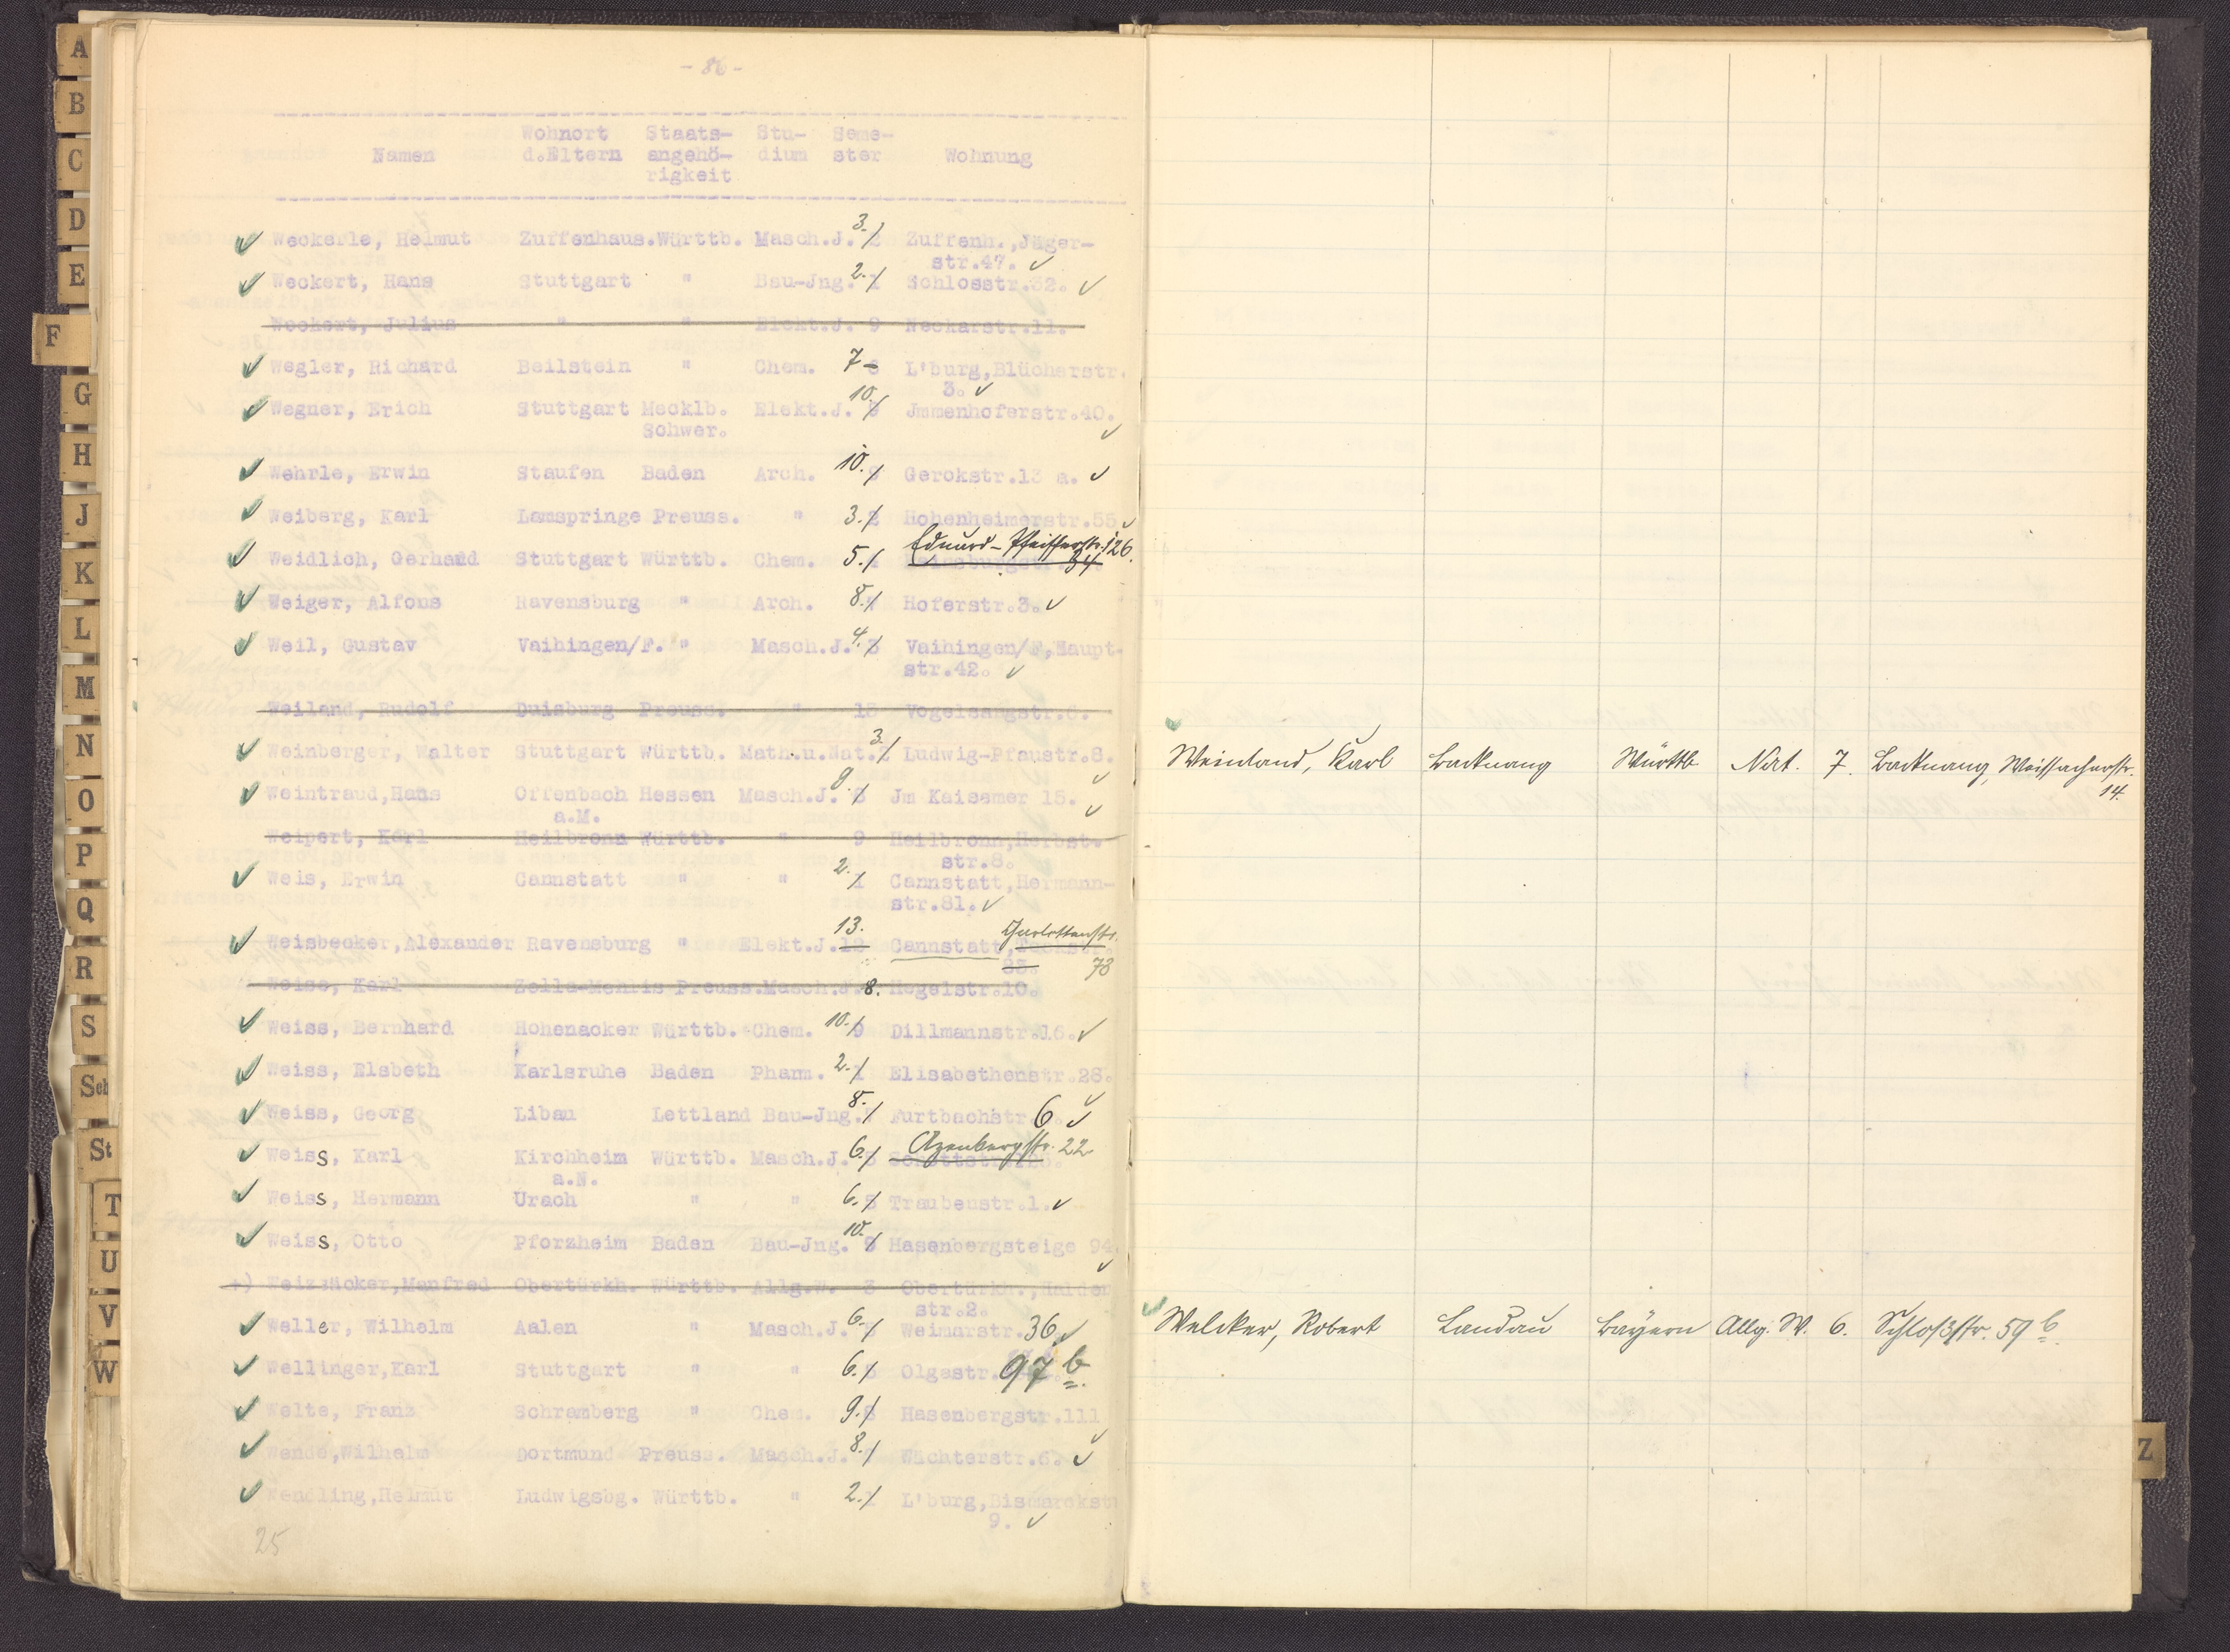 A
B
C
D
E
F
G
H
J
K
L
M
N
O
P
Q
R
S
Sch
St
T
U
V
W
Z
- 86 -
Wohnort Staats- Stu- Seme-
Namen d.Eltern angehö- dium ster Wohnung
rigkeit
Weckerle, Helmut Zuffenhaus. Württb. Masch.J. 3. Zuffenh.,Jäger-
str.47.
Weckert, Hans Stuttgart " Bau-Jng. 2. 1 Schlosstr.32.
Weckert, Julius " " Elekt.J. 9 Neckarstr.11.
Wegler, Richard Beilstein " Chem. 7 L'burg,Blücherstr.
3.
Wegner, Erich Stuttgart Mecklb. Elekt.J. 10. Jmmenhoferstr.40.
Schwer.
Wehrle, Erwin Staufen Baden Arch. 10. Gerokstr.13 a.
Weiberg, Karl Lamspringe Preuss. " 3. 2 Hohenheimerstr.55
Eduard-Pfeifferstr. 126.
Weidlich, Gerhard Stuttgart Württb. Chem. 5. 84
Weiger, Alfons Ravensburg " Arch. 8. Hoferstr.3.
Weil, Gustav Vaihingen/F. " Masch.J. 4. 3 Vaihingen/F,Haupt-
str.42.
Weiland, Rudolf Duisburg Preuss. " 13 Vogelsangstr.6.
Weinberger, Walter Stuttgart Württb. Math.u.Nat. 3. 2 Ludwig-Pfaustr.8.
Weintraud,Hans Offenbach Hessen Masch.J. 9. 8 Jm Kaisemer 15.
a.M.
Weipert, Karl Heilbronn Württb. " 9 Heilbronn,Herbst-
str.8.
Weis, Erwin Cannstatt " " 2. 1 Cannstatt,Hermann-
str.81.
13. Charlottenstr.
Weisbecker,Alexander Ravensburg " Elekt.J. 12 Cannstatt,
83. 73
Weise, Karl Zella-Mehlis Preuss. Masch.J. 8. Hegelstr.10.
Weiss, Bernhard Hohenacker Württb. Chem. 10. 9 Dillmannstr.16.
Weiss, Elsbeth Karlsruhe Baden Pharm. 2. 1 Elisabethenstr.28.
Weiss, Georg Libau Lettland Bau-Jng. 8. Furtbachstr 6
Azenbergstr. 22
Weiss, Karl Kirchheim Württb. Masch.J. 6. 5
a.N.
Weiss, Hermann Urach " " 6. 5 Traubenstr.1.
Weiss, Otto Pforzheim Baden Bau-Jng. 10. 9 Hasenbergsteige 94
+) Weizsäcker,Manfred Obertürkh. Württb. Allg.W. 3 Obertürkh.,Halden
str.2.
Weller, Wilhelm Aalen " Masch.J. 6. 5 Weimarstr. 36
Wellinger,Karl Stuttgart " " 6. 5 Olgastr. 97 b.
Welte, Franz Schramberg " Chem. 9. 8 Hasenbergstr.111
Wende,Wilhelm Dortmund Preuss. Masch.J. 8. Wächterstr.6.
Wendling,Helmut Ludwigsbg. Württb. " 2. 1 L'burg,Bismarckst
9.
25
Weinland, Karl Backnang Württb Nat. 7. Backnang, Weissacherstr.
14.
Welcker, Robert Landau Bayern Allg. W. 6. Schloßstr. 59 b.